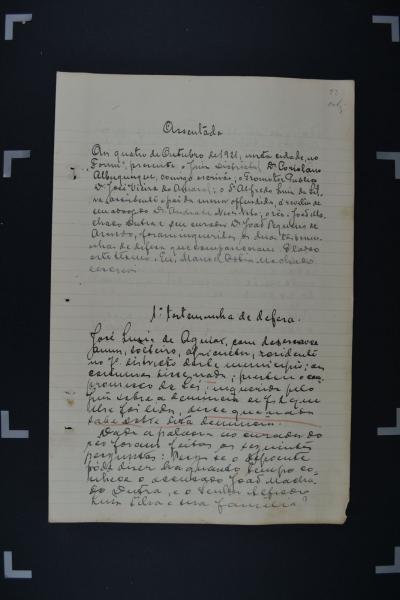 Assentada
Aos quatro de Outubro de 1921, nesta cidade, no
Forum, presente o Juiz Districtal Dr Coriolano
Albuquerque, comigo escrivão, o Promotor Publico
Dr José Vieira do Amaral; o Sr Alfredo Luis da Sil-
va assistente e pai da menor offendida, a revelia de
seu advogado Dr Andrade Neves Neto, o réo João Ma-
chado Dutra e seu curador Dr João Pequeno de
Azevedo, foram inqueridas as duas testemu-
nhas de defesa que compareceram. E lavro
este termo. Eu, Manoel Machado
escrevi
1ª Testemunha de defesa.
José Luiz de Aguiar, com dezenove
annos, solteiro, agricultor, residente
no 7º districto deste municipio; aos
costumes disse nada; prestou o com
promisso da lei; inquerida pelo
Juiz sobre a denuncia de fs. que
lhe foi lida, disse que nada
sabe sobre dita denuncia.
Dada a palavra ao curador do
réo foram feitas as seguintes
perguntas: Pergs se o depoente
póde dizer ha quanto tempo co-
nhece o accusado João Macha
do Dutra, e o senhor Alfredo
Luis Silva e sua familia?